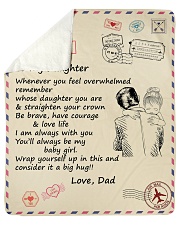 Whenever you feel overwhelmed
remember
whose daughter you are
& straighten your crown
Be brave, have courage
& love life
I am always with you
You'll always be my
baby girl.
Wrap yourself up in this and
consider it a big hug!!
Love, Dad